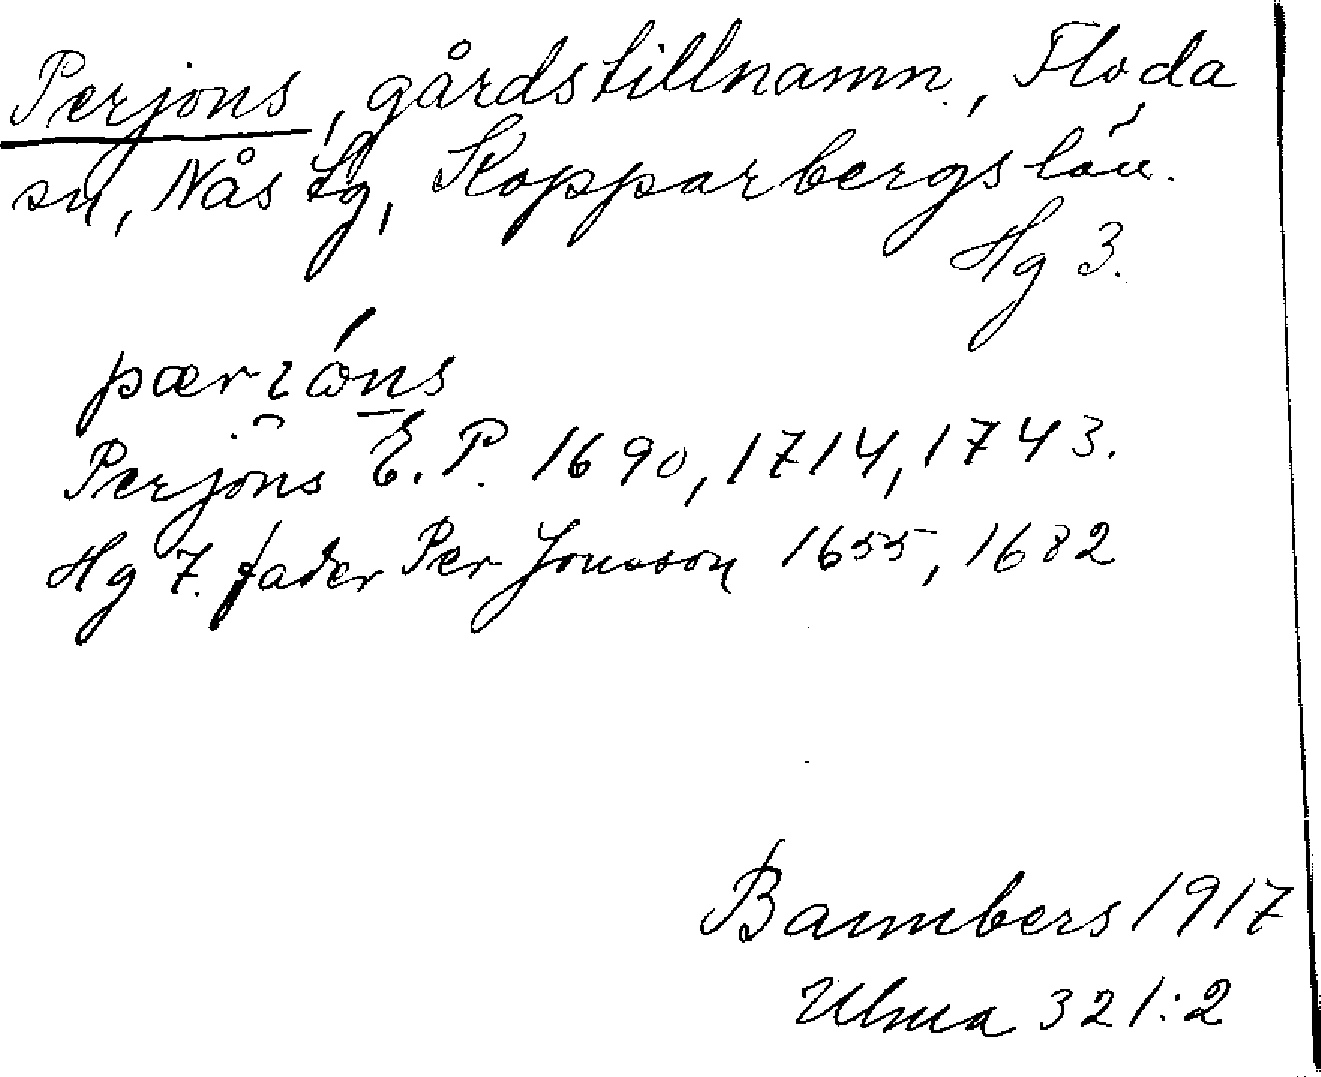 Perjons, gårdstillnamn, Floda
sn, Nås tg, Kopparbergs län.
Hg 3.
pærıóns
Perjons E. P. 1690, 1714, 1743.
Hg 7. fader Per Jonsson 1655, 1682
Bannbers 1917
Ulma 321:2